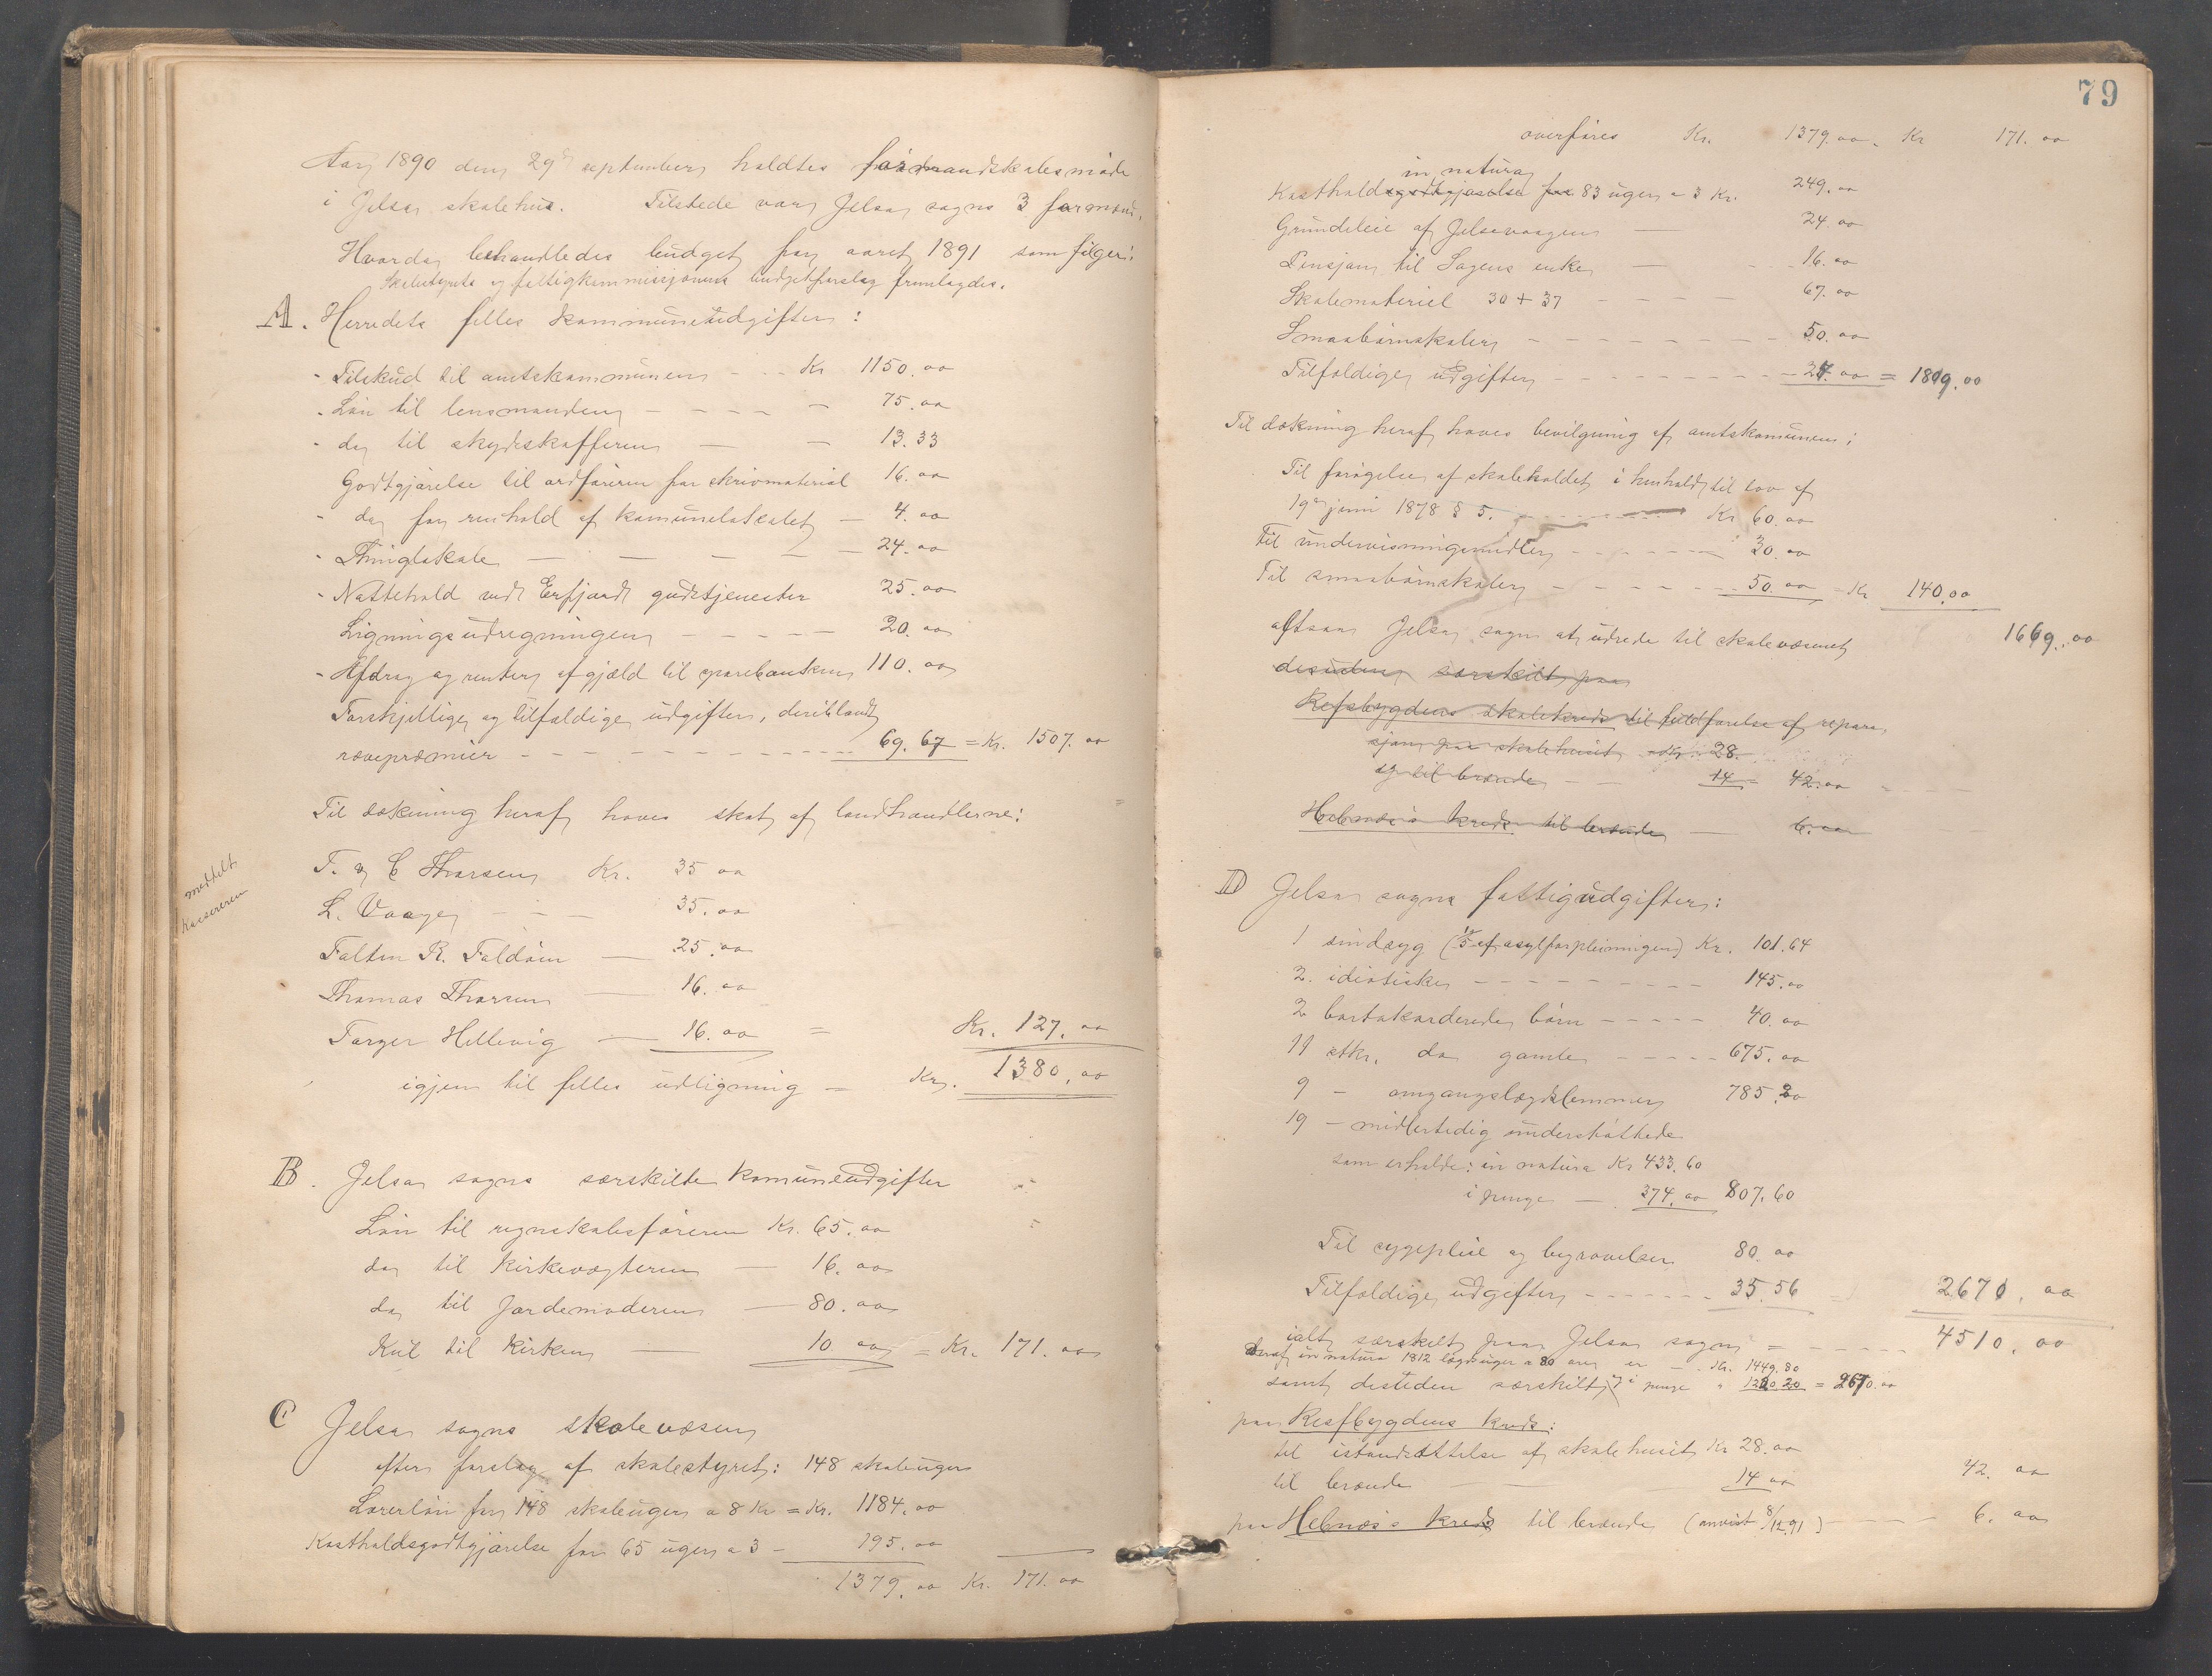 Aar 1890 den 29de september holdtes formandskabsmøde
i Jelsa skolehus. Tilstede var Jelsa sogns 3 formænd.
Hvorda behandledes budget for aaret 1891 som følger:
Skolestyrets og fattigkommissjonens budgetforslag fremlagdes.
A. Herredets felles kommuneudgifter:
- Tilskud til amtskommunen - - - Kr 1150.00
- Løn til lensmanden - - - - - 75.00
- do til skydsskafferen — — 13.33
Godtgjørelse til ordføreren for skrivmaterial 16.00
- do for renhold af kommunelokalet — 4.00
- Thinglokale — — — — — 24.00
- Nattehold ved Erfjord gudstjenester 25.00
Ligningsudregningen - - - - - 20.00
- Afdrag og renter af gjæld til sparebanken 110.00
Forskjellige og tilfældige udgifter, deriblandt
rævepræmier - - - - - - - - - - 69.67 = Kr. 1507.00
Til dækning heraf haves skat af landhandlerne:
meddelt
kassereren
T. & C Thorsen Kr. 35 00
L. Vaage - - - 35.00
Falten R. Foldøen — 25.00
Thomas Thorsen — 16.00
Torger Hellevig — 16.00 = Kr. 127.00
igjen til felles udligning = Kr. 1380.00
B. Jelsa sogns særskilte kommuneudgifter
Løn til regnskabsføreren Kr. 65.00
do til kirkevægteren — 16.00
do til Jordemoderen — 80.00
Kul til kirken — 10 00 = Kr. 171.00
C Jelsa sogns skolevæsen
efter forslag af skolestyret: 148 skoleuger
Lærerløn for 148 skoleuger a 8 Kr = Kr. 1184.00
Kostholdsgodtgjørelse for 65 uger a 3 - 195.00
1379.00 Kr. 171.00
79
overføres Kr. 1379.00. Kr 171.00
in natura
Kostholdsgodtgjørelse for 83 uger a 3 Kr. 249.00
Grundleie af Jelsevaagen — 24.00
Pensjon til Sagens enke — 16.00
Skolemateriel 30 + 37 - - - - 67.00
Smaabørnskolen - - - - - - - - 50.00
Tilfældige udgifter - - - - - - - - 27.00 = 1809.00
Til dækning heraf haves bevilgning af amtskommunen:
Til forøgelse af skoleholdet i henhold til lov af
19de juni 1878 § 5. - - - - - - - Kr 60.00
Til undervisningsmidler - - - - - - 30.00
Til smaabørnskolen - - - - - - 50.00 = Kr 140.00
altsaa Jelsa sogn at udrede til skolevæsenet 1669.00
desuden særskilt paa
Refsbygdens skolekreds til fuldførelse af repara
sjon paa skolehuset Kr. 28.
og til brænde — 14 = 42.00
Hebnæs's kreds til brænde — 6.00
D Jelsa sogns fattigudgifter:
1 sindsyg (af asylforpleiningen) Kr. 101.64
2. idiotiske - - - - - - - - - 145.00
2 bortakorderede børn - - - - - 40.00
11 stkr. do gamle - - - - - 675.00
9 - omgangslægdslemmer 785.20
19 - midlertidig understøttede
som erholde: in natura Kr 433.60
i penge — 374.00 807.60
Til sygepleie og begravelser 80.00
Tilfældige udgifter - - - - - - - 35.56 2670.00
ialt særskelt paa Jelsa sogn = - - - - - 4510.00
deraf in natura 1812 lægdsuger a 80 øre er - - Kr. 1449.80
samt desuden særskilt, i penge " 1220.20 = 2670.00
paa Resfbygdens kreds:
til istandsættelse af skolehuset Kr 28.00
til brænde — — 14 00 42.00
paa Hebnæs's kreds til brænde (anvist 8/12 91) - - - 6.00